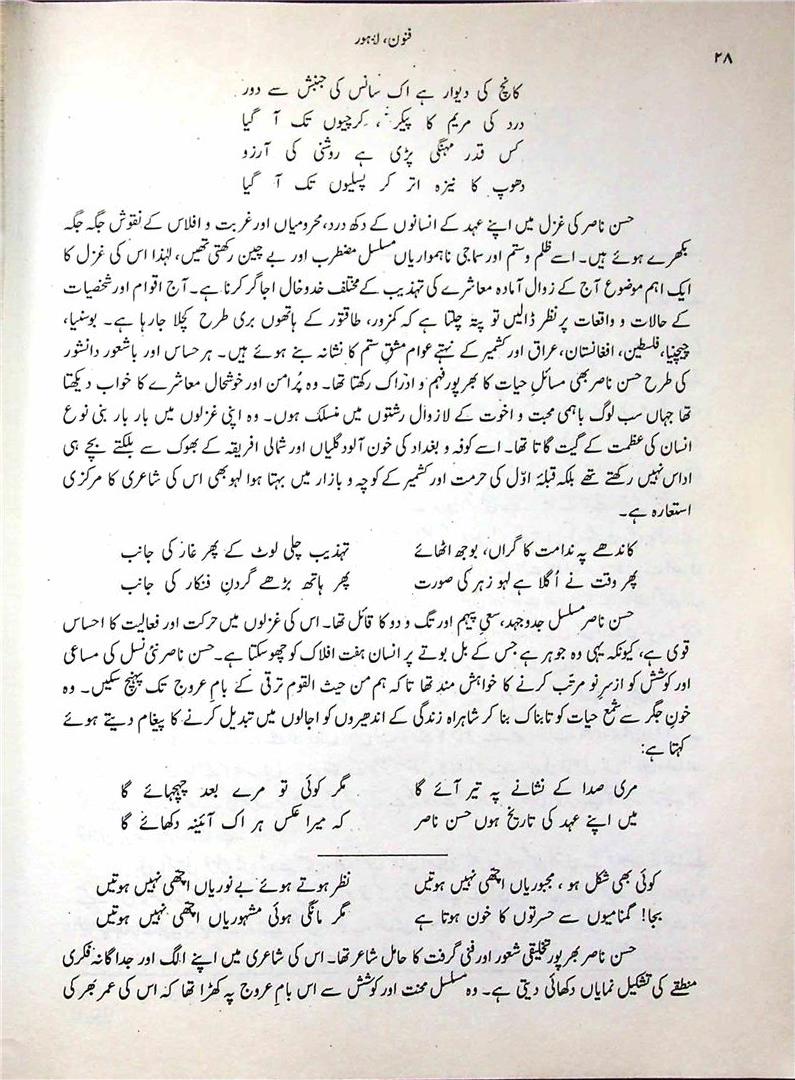 فنون، لاہور
۲۸
کانچ کی دیوار ہے اک سانس کی جنبش سے دور
درد کی مریم کا پیکر، کرچیوں تک آ گیا
کس قدر مہنگی پڑی ہے روشنی کی آرزو
دھوپ کا نیزہ اتر کر پسلیوں تک آ گیا
حسن ناصر کی غزل میں اپنے عہد کے انسانوں کے دکھ درد، محرومیاں اور غربت و افلاس کے نقوش جگہ جگہ
بکھرے ہوئے ہیں۔ اسے ظلم و ستم اور سماجی ناہمواریاں مسلسل مضطرب اور بے چین رکھتی تھیں، لہٰذا اس کی غزل کا
ایک اہم موضوع آج کے زوال آمادہ معاشرے کی تہذیب کے مختلف خدوخال اجاگر کرنا ہے۔ آج اقوام اور شخصیات
کے حالات و واقعات پر نظر ڈالیں تو پتہ چلتا ہے کہ کمزور، طاقتور کے ہاتھوں بری طرح کچلا جا رہا ہے۔ بوسنیا،
چیچنیا، فلسطین، افغانستان، عراق اور کشمیر کے نہتے عوام مشقِ ستم کا نشانہ بنے ہوئے ہیں۔ ہر حساس اور باشعور دانشور
کی طرح حسن ناصر بھی مسائلِ حیات کا بھرپور فہم و ادراک رکھتا تھا۔ وہ پُرامن اور خوشحال معاشرے کا خواب دیکھتا
تھا جہاں سب لوگ باہمی محبت و اخوت کے لازوال رشتوں میں منسلک ہوں۔ وہ اپنی غزلوں میں بار بار بنی نوع
انسان کی عظمت کے گیت گاتا تھا۔ اسے کوفہ و بغداد کی خون آلود گلیاں اور شمالی افریقہ کے بھوک سے بلکتے بچے ہی
اداس نہیں رکھتے تھے بلکہ قبلۂ اوّل کی حرمت اور کشمیر کے کوچہ و بازار میں بہتا ہوا لہو بھی اس کی شاعری کا مرکزی
استعارہ ہے۔
کاندھے پہ ندامت کا گراں، بوجھ اٹھائے تہذیب چلی لوٹ کے پھر غار کی جانب
پھر وقت نے اُگلا ہے لہو زہر کی صورت پھر ہاتھ بڑھے گردنِ فنکار کی جانب
حسن ناصر مسلسل جدوجہد، سعیِ پیہم اور تگ و دو کا قائل تھا۔ اس کی غزلوں میں حرکت اور فعالیت کا احساس
قوی ہے، کیونکہ یہی وہ جوہر ہے جس کے بل بوتے پر انسان ہفت افلاک کو چھو سکتا ہے۔ حسن ناصر نئی نسل کی مساعی
اور کوشش کو ازسرِنو مرتّب کرنے کا خواہش مند تھا تاکہ ہم من حیث القوم ترقی کے بامِ عروج تک پہنچ سکیں۔ وہ
خونِ جگر سے شمعِ حیات کو تابناک بنا کر شاہراہ زندگی کے اندھیروں کو اجالوں میں تبدیل کرنے کا پیغام دیتے ہوئے
کہتا ہے:
مری صدا کے نشانے پہ تیر آئے گا مگر کوئی تو مرے بعد چہچہائے گا
میں اپنے عہد کی تاریخ ہوں حسن ناصر کہ میرا عکس ہر اک آئینہ دکھائے گا
کوئی بھی شکل ہو، مجبوریاں اچھی نہیں ہوتیں نظر ہوتے ہوئے بے نوریاں اچھی نہیں ہوتیں
بجا! گمنامیوں سے حسرتوں کا خون ہوتا ہے مگر مانگی ہوئی مشہوریاں اچھی نہیں ہوتیں
حسن ناصر بھرپور تخلیقی شعور اور فنی گرفت کا حامل شاعر تھا۔ اس کی شاعری میں اپنے الگ اور جداگانہ فکری
منطقے کی تشکیل نمایاں دکھائی دیتی ہے۔ وہ مسلسل محنت اور کوشش سے اس بامِ عروج پہ کھڑا تھا کہ اس کی عمر بھر کی